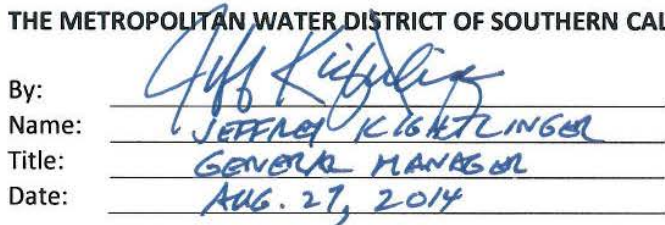 THE METROPOLITAN WATER DISTRICT OF SOUTHERN CAL
By: Jeff Kightlinger
Name: JEFFREY KIGHTLINGER
Title: GENERAL MANAGER
Date: AUG. 27, 2014